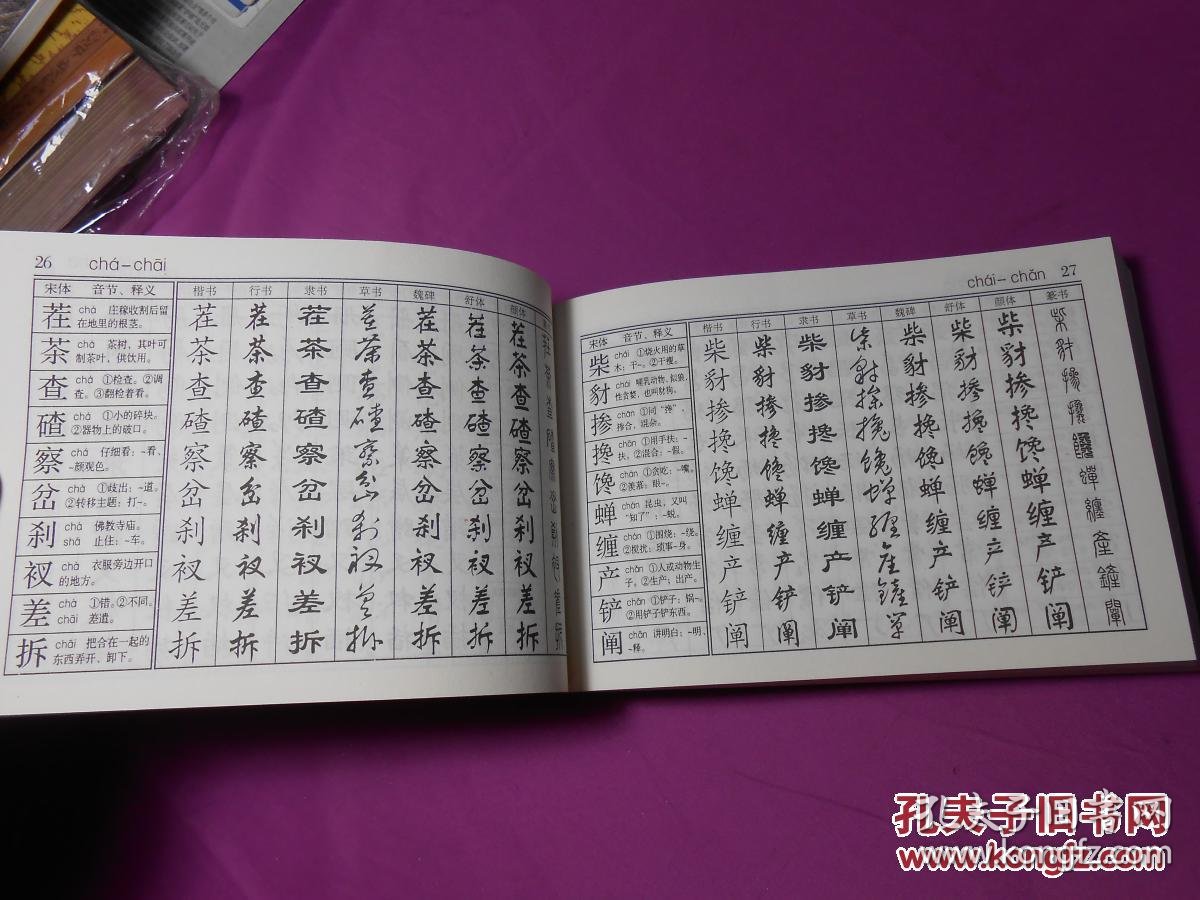 26 chá–chāi
宋体 音节、释义 楷书 行书 隶书 草书 魏碑 舒体 颜体
茬 chá 庄稼收割后留在地里的根茎。 茬 茬 茬 茬 茬 茬 茬
茶 chá 茶树，其叶可制茶叶，供饮用。 茶 茶 茶 茶 茶 茶 茶
查 chá ①检查。②调查。③翻检着看。 查 查 查 查 查 查 查
碴 chá ①小的碎块。②器物上的破口。 碴 碴 碴 碴 碴 碴 碴
察 chá 仔细看：~看、~颜观色。 察 察 察 察 察 察 察
岔 chà ①歧出：~道。②转移主题：打~。 岔 岔 岔 岔 岔 岔 岔
刹 chà 佛教寺庙。shā 止住：~车。 刹 刹 刹 刹 刹 刹 刹
衩 chà 衣服旁边开口的地方。 衩 衩 衩 衩 衩 衩 衩
差 chà ①错。②不同。chāi 差遣。 差 差 差 差 差 差 差
拆 chāi 把合在一起的东西弄开、卸下。 拆 拆 拆 拆 拆 拆 拆
chái–chǎn 27
宋体 音节、释义 楷书 行书 隶书 草书 魏碑 舒体 颜体 篆书
柴 chái ①烧火用的草木：干~。②干瘦。 柴 柴 柴 柴 柴 柴 柴 柴
豺 chái 哺乳动物，似狼，性贪婪，也叫豺狗。 豺 豺 豺 豺 豺 豺 豺 豺
掺 chān ①同“搀”，掺合，混杂。 掺 掺 掺 掺 掺 掺 掺 掺
搀 chān ①用手扶：~扶。②混合：~假。 搀 搀 搀 搀 搀 搀 搀 搀
馋 chán ①贪吃：~嘴。②羡慕：眼~。 馋 馋 馋 馋 馋 馋 馋 馋
蝉 chán 昆虫，又叫“知了”：~蜕。 蝉 蝉 蝉 蝉 蝉 蝉 蝉 蝉
缠 chán ①围绕：~绕。②搅扰：琐事~身。 缠 缠 缠 缠 缠 缠 缠 缠
产 chǎn ①人或动物生子。②生产：出产。 产 产 产 产 产 产 产 产
铲 chǎn ①铲子：锅~。②用铲子铲东西。 铲 铲 铲 铲 铲 铲 铲 铲
阐 chǎn 讲明白：~明、~释。 阐 阐 阐 阐 阐 阐 阐 阐
孔夫子旧书网
www.kongfz.com